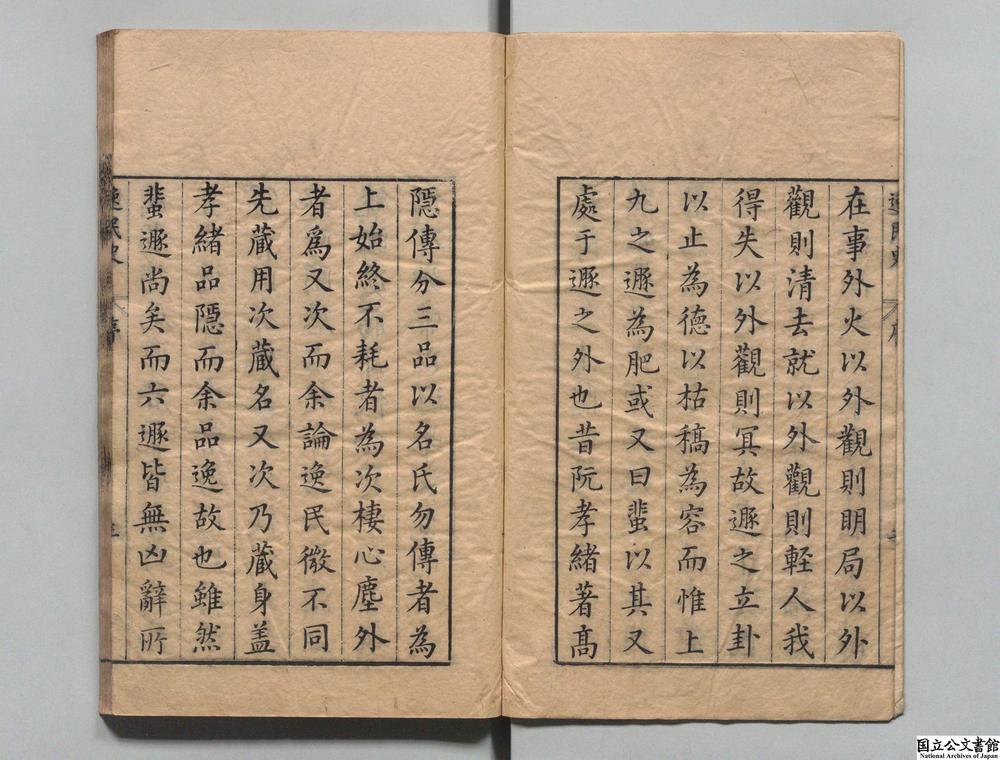 在事外火以外觀則明局以外
觀則清去就以外觀則輕人我
得失以外觀則冥故遯之立卦
以止為德以枯稿為容而惟上
九之遯為肥或又曰蜚以其又
處于遯之外也昔阮孝緒著高
隱傳分三品以名氏勿傳者為
上始終不耗者為次棲心塵外
者為又次而余論逸民微不同
先藏用次藏名又次乃藏身盖
孝緒品隱而余品逸故也雖然
蜚遯尚矣而六遯皆無凶辭所
逸民史
序
国立公文書館
National Archives of Japan